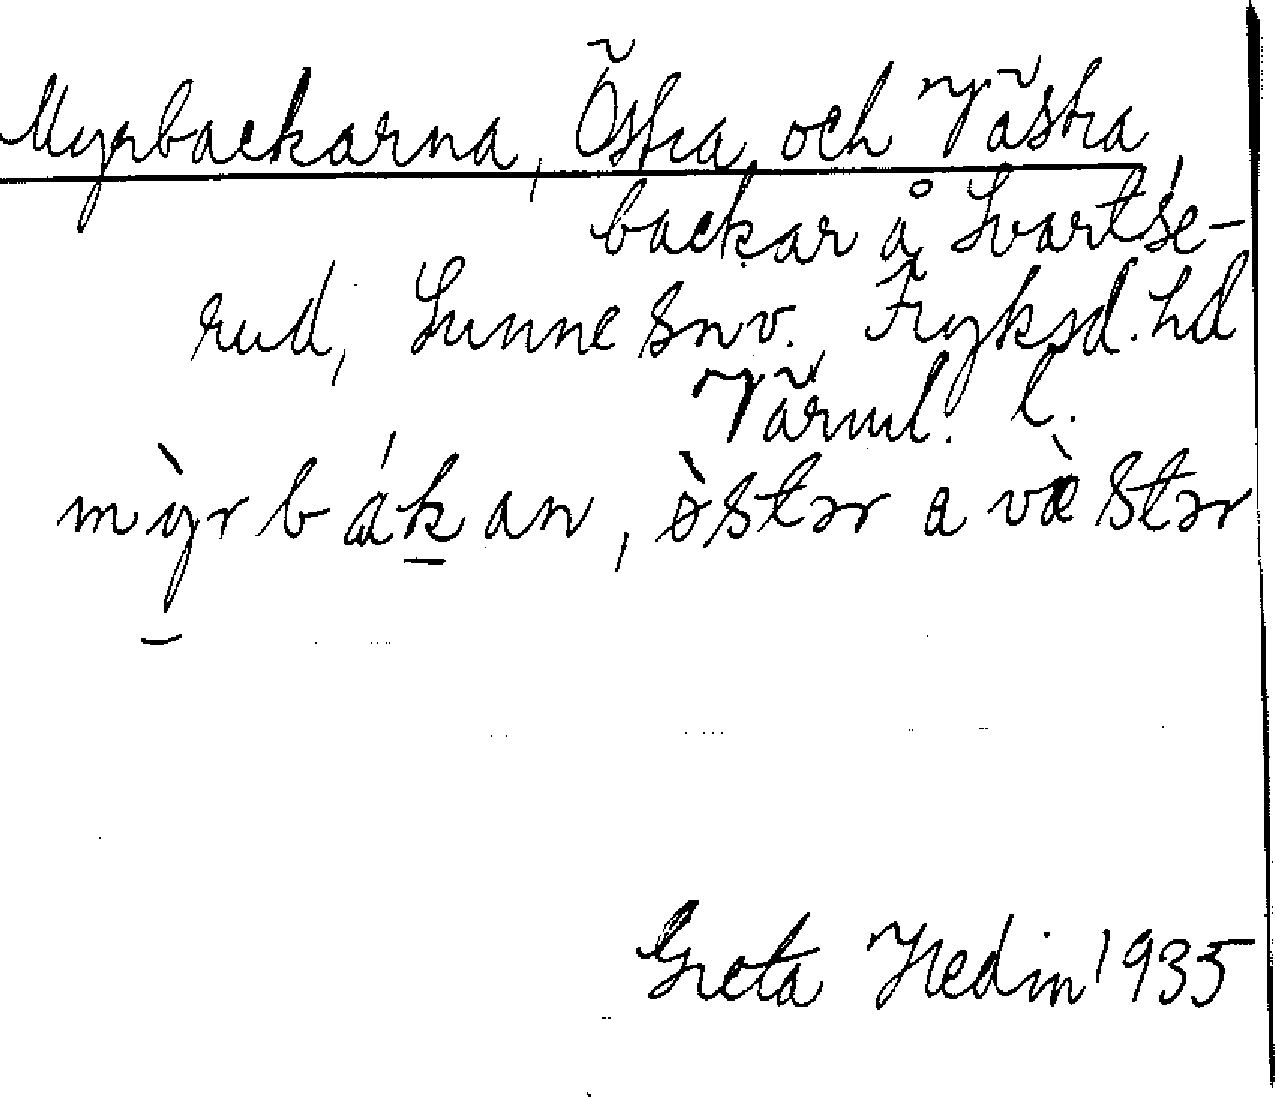 Myrbackarna, Östra och Västra,
backar å Svartse-
rud, Sunne snv. Fryksd. hd
Värml. l.
mỳr bákan, òstər a væ̀stər
Greta Hedin 1935